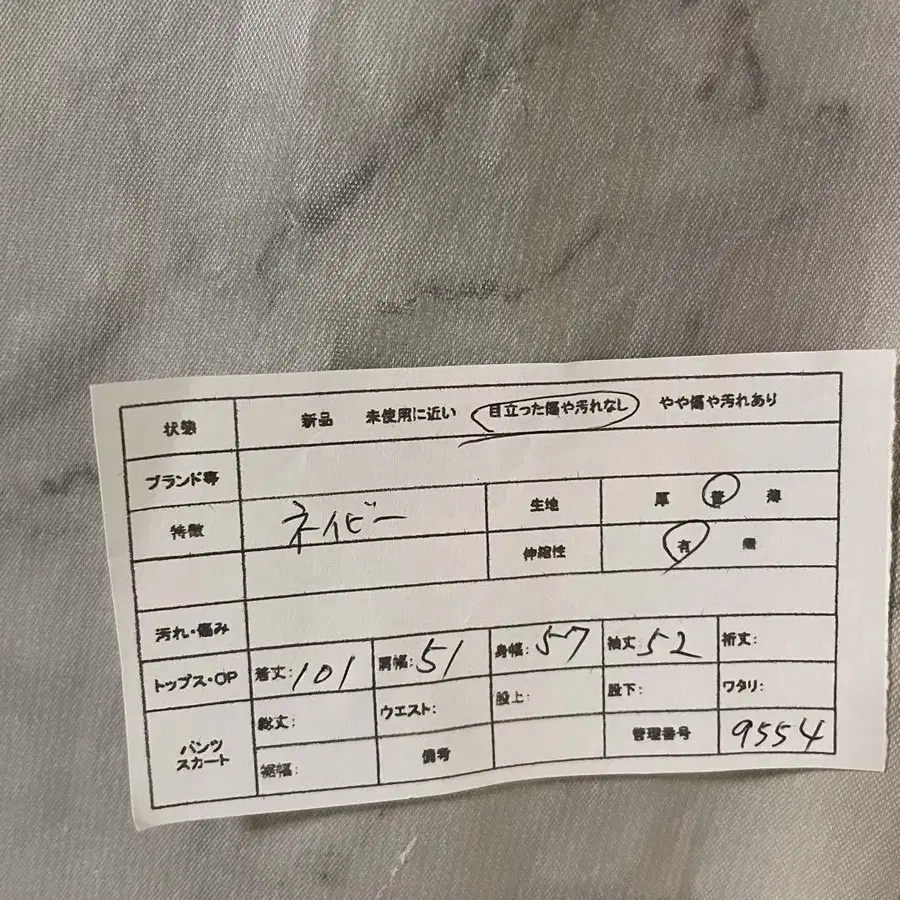 状態 新品 未使用に近い 目立った傷や汚れなし やや傷や汚れあり
ブランド等
特徴 ネイビー 生地 厚 普 薄
伸縮性 有 無
汚れ・傷み
トップス・OP 着丈:101 肩幅:51 身幅:57 袖丈:52 裄丈:
パンツ スカート 総丈: ウエスト: 股上: 股下: ワタリ:
裾幅: 備考 管理番号 9554